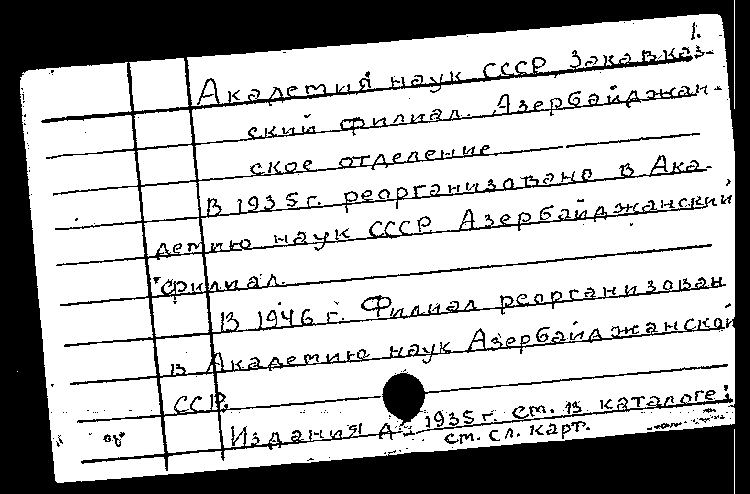 1.
Академия наук СССР, Закавказ-
ский филиал. Азербайджан-
ское отделение.
В 1935 г. реорганизовано в Ака-
демию наук СССР Азербайджанский
филиал.
В 1946 г. Филиал реорганизован
в Академию наук Азербайджанской
ССР.
Издания до 1935 г. см. в каталоге:
см. сл. карт.